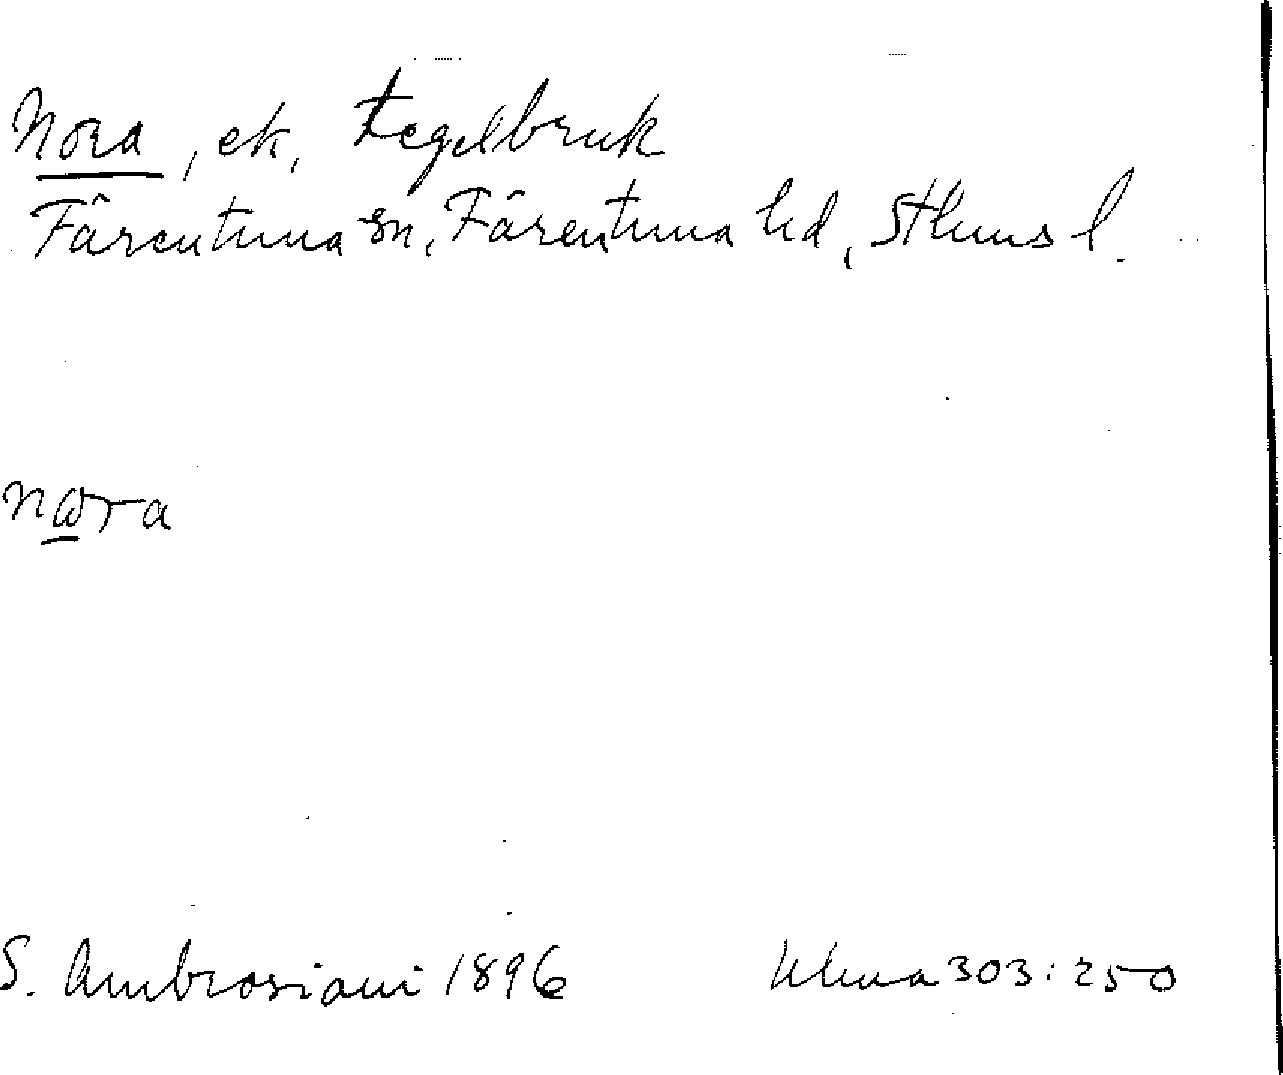 Nora, ek, tegelbruk
Färentuna sn, Färentuna hd, Sthms l.
nωra
S. Ambrosiani 1896 Uluma 303:250